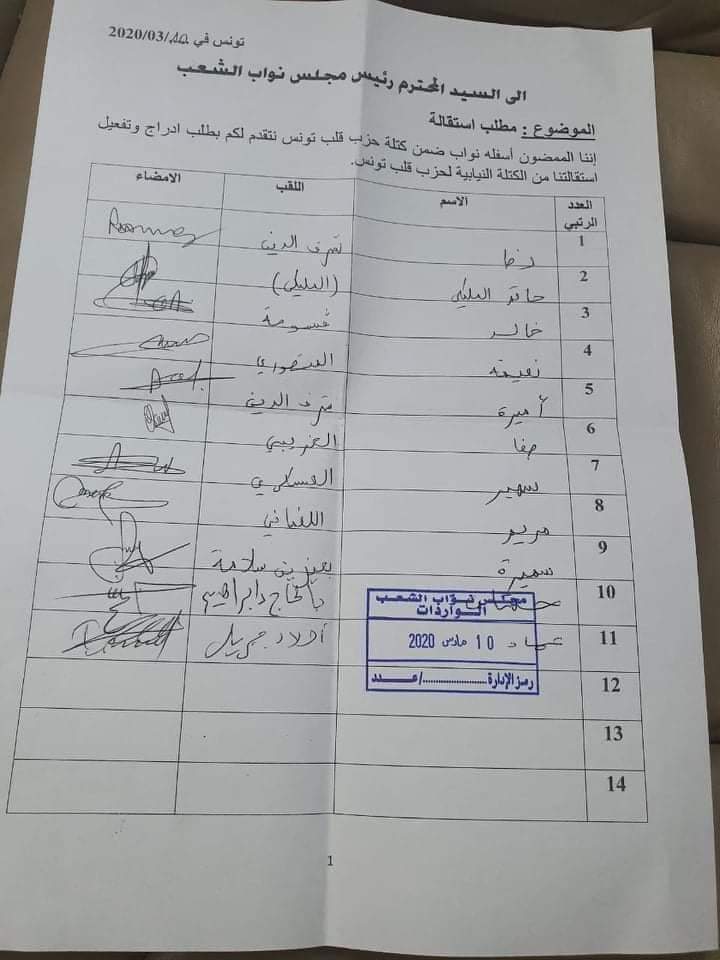 تونس في 10/03/2020
الى السيد المحترم رئيس مجلس نواب الشعب
الموضوع : مطلب استقالة
إننا الممضون أسفله نواب ضمن كتلة حزب قلب تونس نتقدم لكم بطلب ادراج وتفعيل
استقالتنا من الكتلة النيابية لحزب قلب تونس.
العدد الرتبي الاسم اللقب الامضاء
1 رضا شرف الدين
2 حاتم المليكي (المليكي)
3 خالد قسومة
4 نعيمة المنصوري
5 أميرة شرف الدين
6 صفا الغريبي
7 سهير العسكري
8 مريم اللغماني
9 سميرة بن سلامة
10 بالحاج دابراهيم
11 عماد أولاد جبريل
12
13
14
مجلس نواب الشعب
الواردات
10 مارس 2020
رمز الإدارة ........../عدد
1